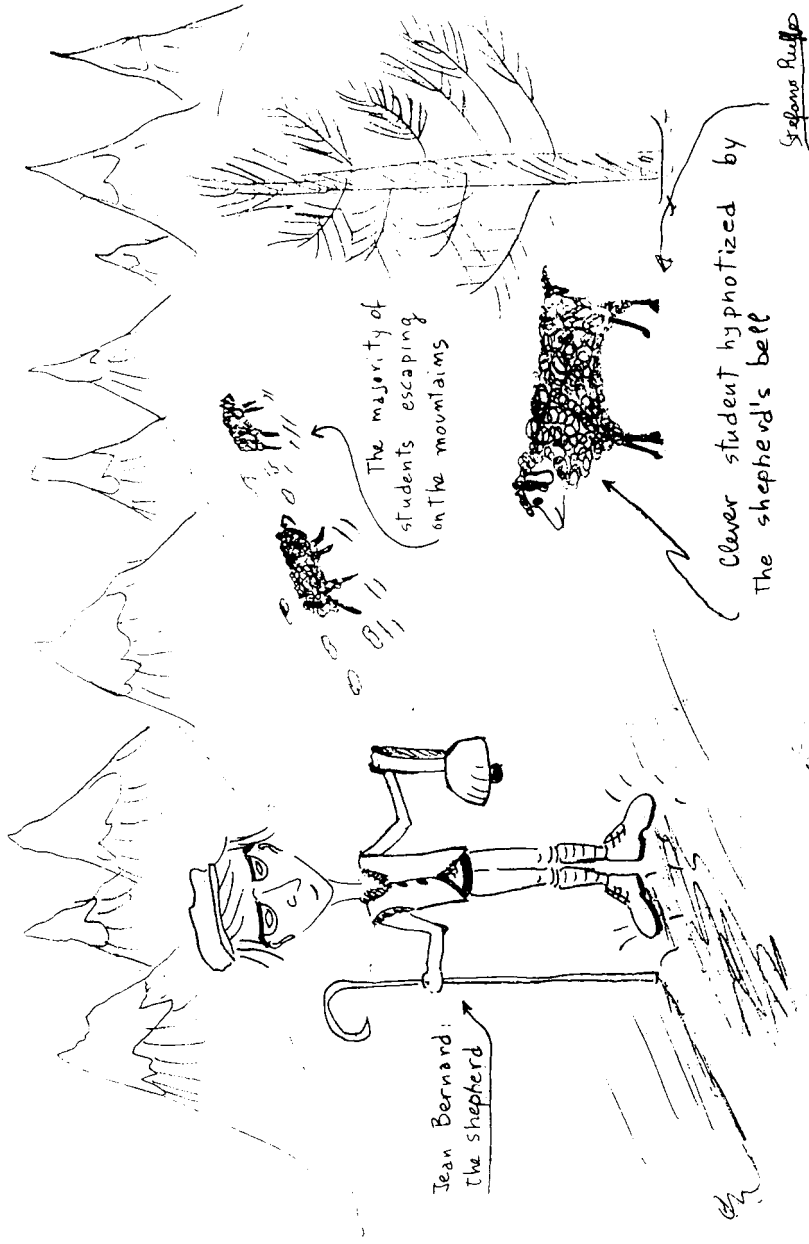 Jean Bernard:
the shepherd
The majority of
students escaping
on the mountaims
Clever student hypnotized by
The shepherd's bell
Stefano Ruffo